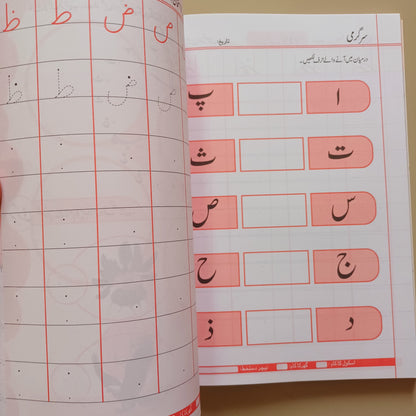 سرگرمی تاریخ:
درمیان میں آنے والے حرف لکھیں۔
ا پ
ت ث
س ص
ج ح
د ذ
اسکول کا کام: گھر کا کام: ٹیچر دستخط:
ص ض ط ظ
ص ض ط ظ